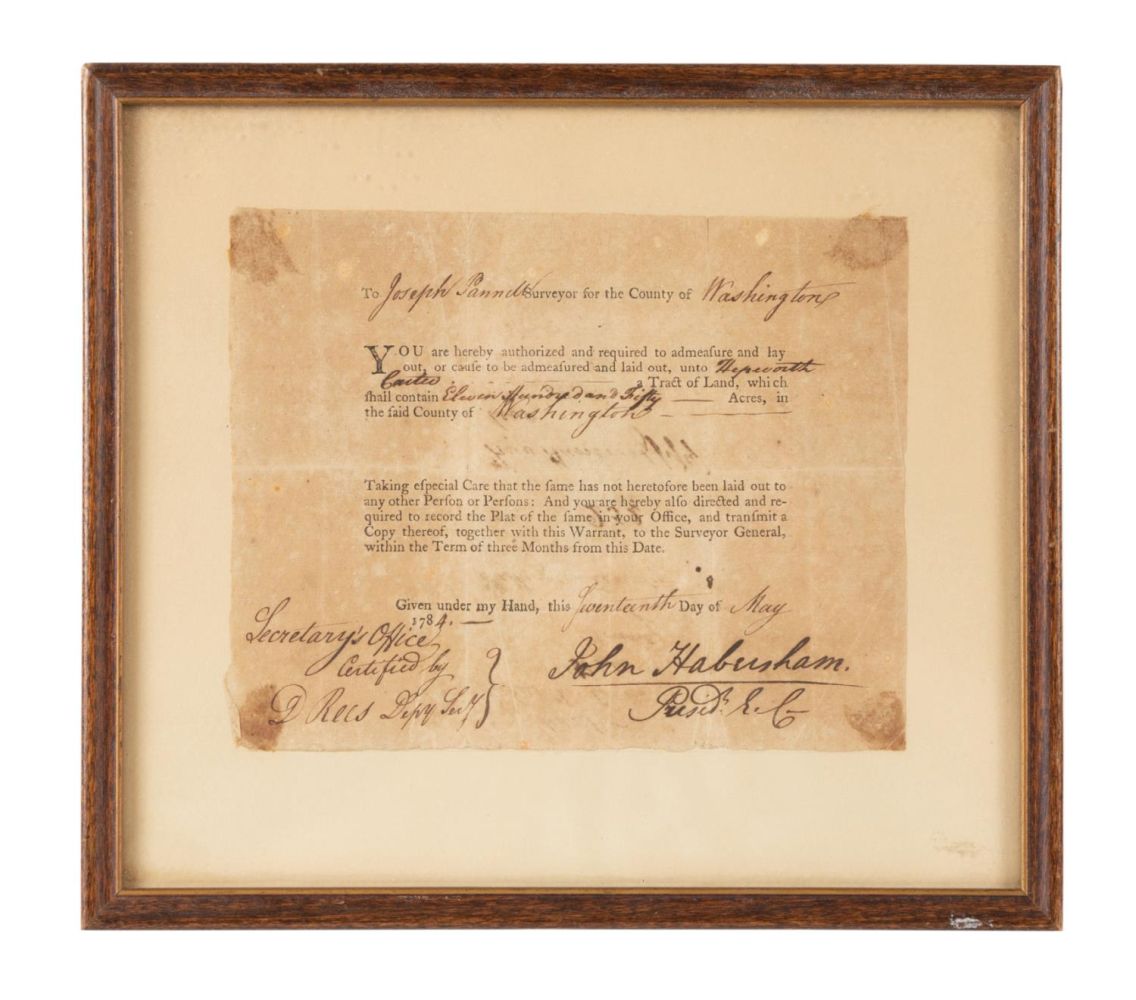 To Joseph Pannill Surveyor for the County of Washington
YOU are hereby authorized and required to admeaſure and lay
out, or cauſe to be admeaſured and laid out, unto Hepworth
Carter a Tract of Land, which
ſhall contain Eleven Hundred and Fifty Acres, in
the ſaid County of Washington
Taking eſpecial Care that the ſame has not heretofore been laid out to
any other Perſon or Perſons: And you are hereby alſo directed and re-
quired to record the Plat of the ſame in your Office, and tranſmit a
Copy thereof, together with this Warrant, to the Surveyor General,
within the Term of three Months from this Date.
Given under my Hand, this Day of May
1784.
Secretary's Office
Certified by
D Rees Depy Secy
John Habersham.
Presidt. E. C